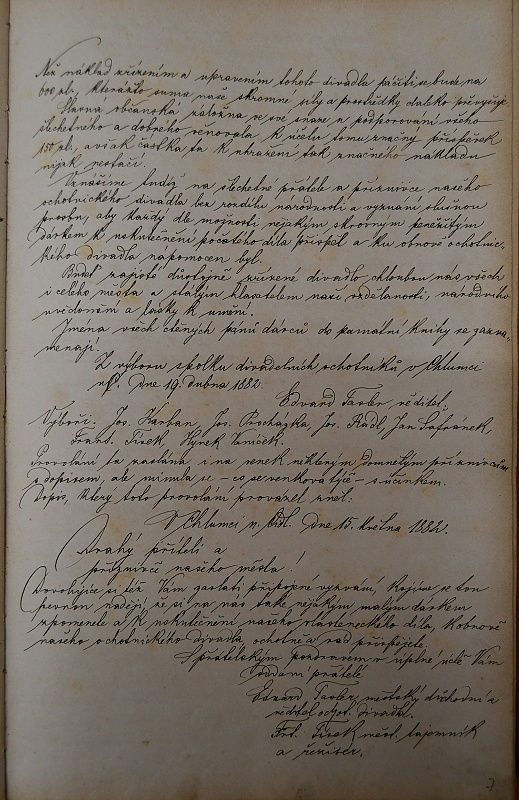 Než náklad zřízením a upravením tohoto divadla páčiti se bude na
600 zl., kterážto suma naše skromné síly a prostředky daleko převyšuje.
Slavná občanská záložna ve své snaze a podporování všeho
šlechetného a dobrého věnovala k účelu tomu značný příspěvek
150 zl., avšak částka ta k uhražení tak značného nákladu
nijak nestačí.
Vznášíme tudíž na šlechetné přátele a příznivce našeho
ochotnického divadla bez rozdílu národnosti a vyznání slušnou
prosbu, aby každý dle možnosti nějakým skrovným peněžitým
dárkem k uskutečnění počatého díla přispěl a ku obnově ochotnic-
kého divadla nápomocen byl.
Budeť zajisté důstojně zřízené divadlo chloubou nás všech
i celého města a stálým hlasatelem naší vzdělanosti, národního
uvědomění a lásky k umění.
Jména všech ctěných pánů dárců do pamětní knihy se zazna-
menají.
Z výboru spolku divadelních ochotníků v Chlumci
n/C. Dne 19. dubna 1882.
Edvard Tauber, ředitel.
Výboři: Jos. Karban, Jos. Procházka, Jos. Rádl, Jan Šafránek,
Frant. Fišek, Hynek Janíček.
Provolání to zasláno i na venek některým domnělým příznivcům
s dopisem, ale minulo se - co se venkova týče - s účinkem.
Dopis, který toto provolání provázel zněl:
V Chlumci n. Cidl. Dne 15. května 1882.
Drahý příteli a
příznivče našeho města!
Dovolujíce si též Vám zaslati připojené vyzvání, kojíme se tou
pevnou nadějí, že si na nás také nějakým malým dárkem
vzpomenete a k uskutečnění našeho vlasteneckého díla, k obnově
našeho ochotnického divadla ochotně a rád přispějete.
S přátelským pozdravem v úplné úctě Vám
oddaní přátelé
Edvard Tauber, městský důchodní a
ředitel ochot. divadla.
Frt. Fišek měst. tajemník
a režiser.
7